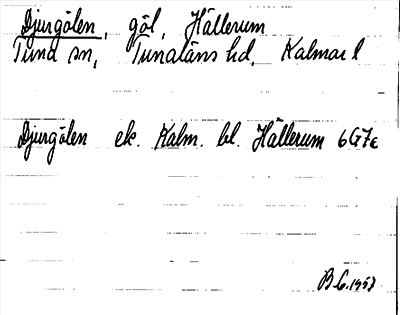 Djurgölen, göl, Hällerum
Tuna sn, Tunaläns hd, Kalmar l
Djurgölen ek. Kalm. bl. Hällerum 6G7e